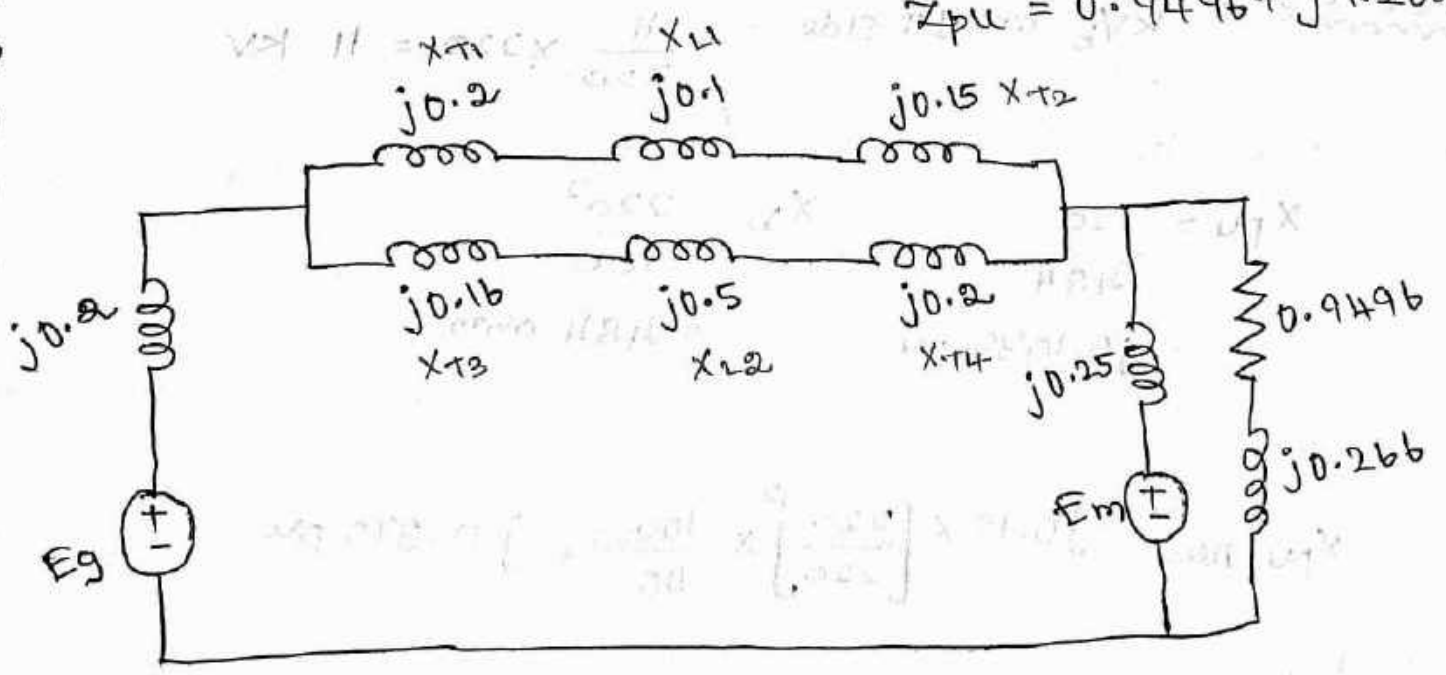 Zpu = 0.9496+j
XT1
XL1
j0.2
j0.1
j0.15 XT2
j0.16
j0.5
j0.2
XT3
XL2
XT4
j0.2
j0.25
0.9496
j0.266
Eg
+
-
Em
+
-